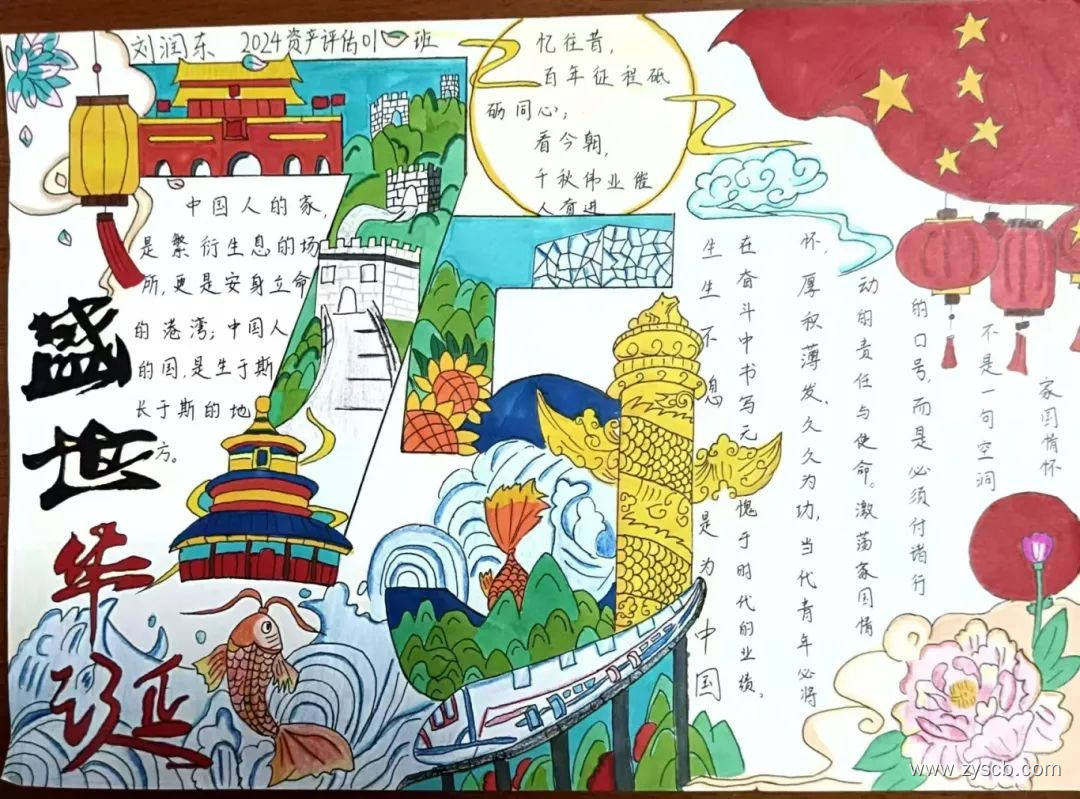 刘润东 2024资产评估01班
忆往昔,
百年征程砥
砺同心;
看今朝,
千秋伟业催
人奋进
中国人的家,
是繁衍生息的场
所,更是安身立命
的港湾;中国人
的国,是生于斯
长于斯的地
方。
盛世华诞
家国情怀
不是一句空洞
的口号,而是必须付诸行
动的责任与使命。激荡家国情
怀,厚积薄发、久久为功,当代青年必将
在奋斗中书写无愧于时代的业绩。
生生不息是为中国
www.zyscb.com